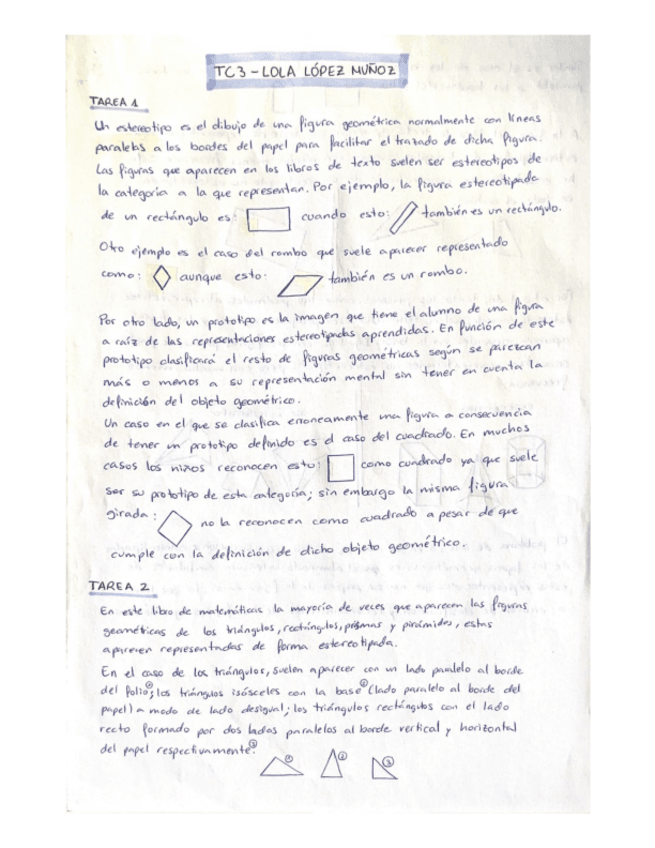 TC3 - LOLA LÓPEZ MUÑOZ
TAREA 1
Un estereotipo es el dibujo de una figura geométrica normalmente con líneas
paralelas a los bordes del papel para facilitar el trazado de dicha figura.
Las figuras que aparecen en los libros de texto suelen ser estereotipos de
la categoría a la que representan. Por ejemplo, la figura estereotipada
de un rectángulo es: cuando esto: también es un rectángulo.
Otro ejemplo es el caso del rombo que suele aparecer representado
como: aunque esto: también es un rombo.
Por otro lado, un prototipo es la imagen que tiene el alumno de una figura
a raíz de las representaciones estereotipadas aprendidas. En función de este
prototipo clasificará el resto de figuras geométricas según se parezcan
más o menos a su representación mental sin tener en cuenta la
definición del objeto geométrico.
Un caso en el que se clasifica erroneamente una figura a consecuencia
de tener un prototipo definido es el caso del cuadrado. En muchos
casos los niños reconocen esto: como cuadrado ya que suele
ser su prototipo de esta categoría; sin embargo la misma figura
girada: no la reconocen como cuadrado a pesar de que
cumple con la definición de dicho objeto geométrico.
TAREA 2
En este libro de matemáticas la mayoría de veces que aparecen las figuras
geométricas de los triángulos, rectángulos, prismas y pirámides, estas
aparecen representadas de forma estereotipada.
En el caso de los triángulos, suelen aparecer con un lado paralelo al borde
del folio①; los triángulos isósceles con la base② (lado paralelo al borde del
papel) a modo de lado desigual; los triángulos rectángulos con el lado
recto formado por dos lados paralelos al borde vertical y horizontal
del papel respectivamente③.
① ② ③